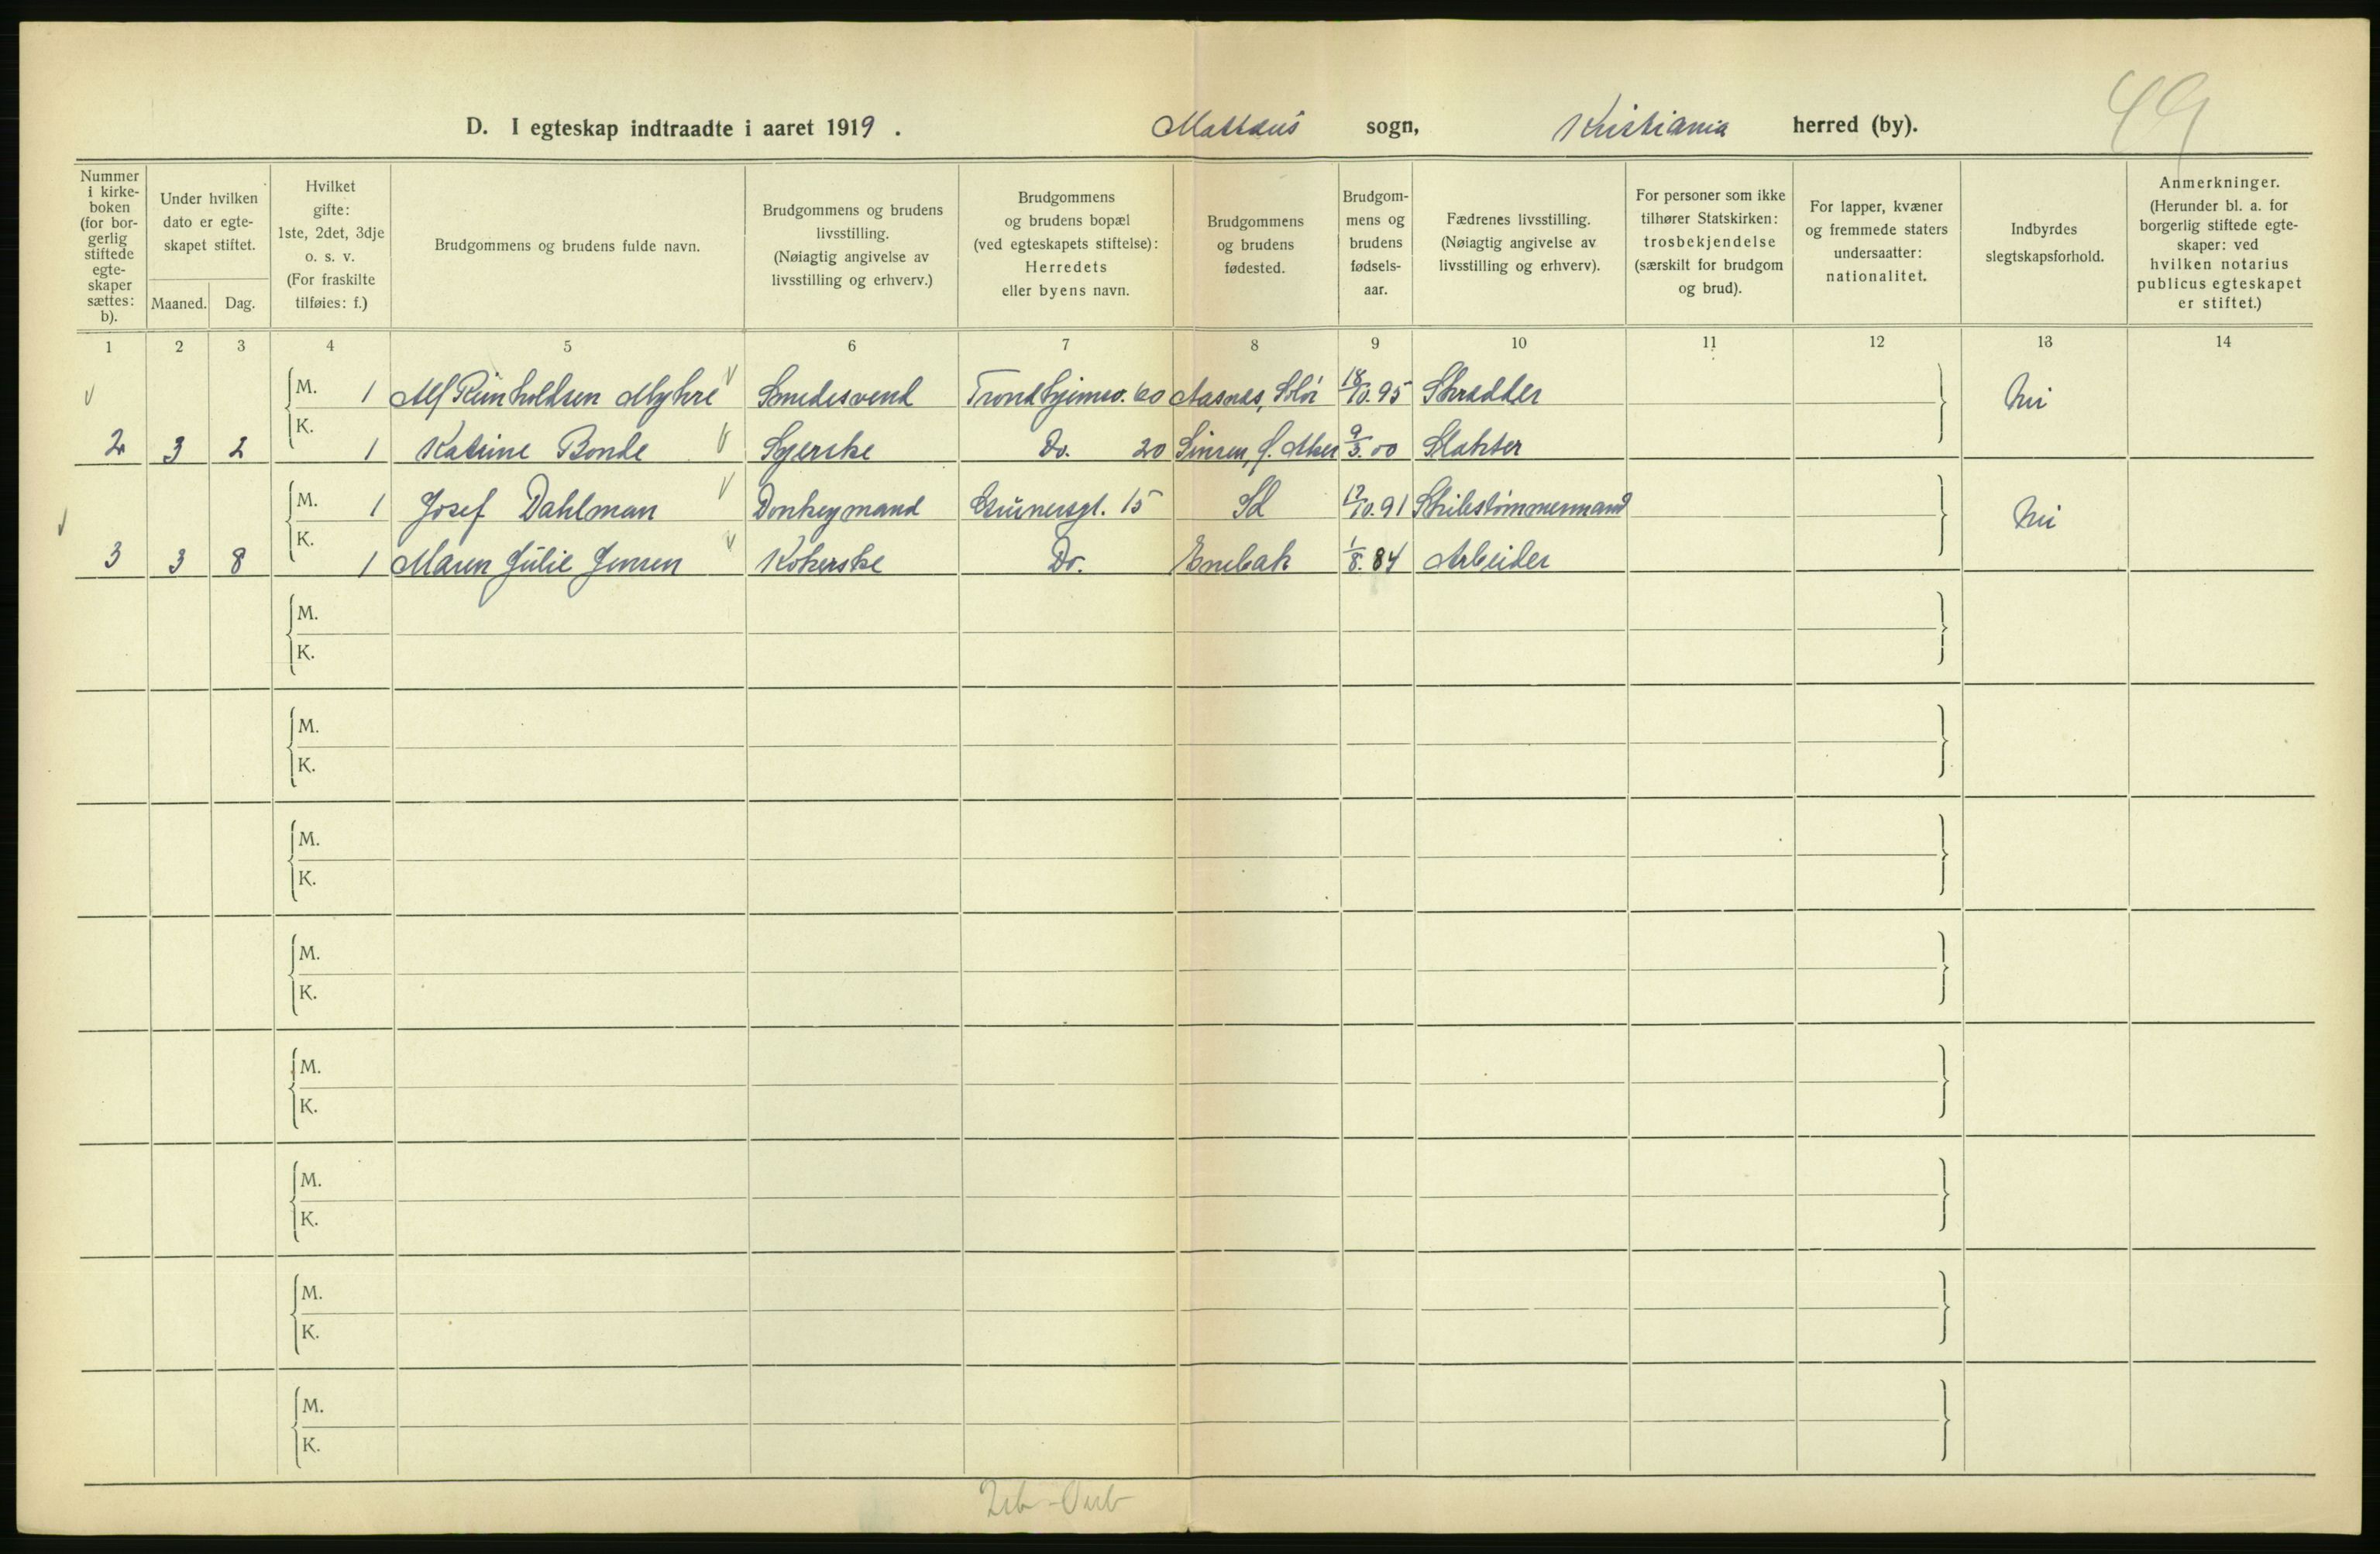 49
D. I egteskap indtraadte i aaret 1919 . Mattæus sogn, Kristiania herred (by).
Nummer i kirke-boken (for bor-gerlig stiftede egte-skaper sættes: b).
Under hvilken dato er egte-skapet stiftet.
Maaned. Dag.
Hvilket gifte: 1ste, 2det, 3dje o. s. v. (For fraskilte tilføies: f.)
Brudgommens og brudens fulde navn.
Brudgommens og brudens livsstilling. (Nøiagtig angivelse av livsstilling og erhverv.)
Brudgommens og brudens bopæl (ved egteskapets stiftelse): Herredets eller byens navn.
Brudgommens og brudens fødested.
Brudgom-mens og brudens fødsels-aar.
Fædrenes livsstilling. (Nøiagtig angivelse av livsstilling og erhverv).
For personer som ikke tilhører Statskirken: trosbekjendelse (særskilt for brudgom og brud).
For lapper, kvæner og fremmede staters undersaatter: nationalitet.
Indbyrdes slegtskapsforhold.
Anmerkninger. (Herunder bl. a. for borgerlig stiftede egte-skaper: ved hvilken notarius publicus egteskapet er stiftet.)
1 2 3 4 5 6 7 8 9 10 11 12 13 14
M. 1 Alf Reinholdsen Myhre Smedesvend Trondhjemsv. 60 Aasnes, Solør 18/10.95 Skrædder Nei
2 3 2 K. 1 Katrine Bonde Syerske Do. 20 Sinsen, Ø. Aker 9/3.00 Slakter
M. 1 Josef Dahlman Donkeymand Grünersgt. 15 17/10.91 Skibstømmermand Nei
3 3 8 K. 1 Maren Julie Jensen Kokerske Do. Enebak 1/8.84 Arbeider
M.
K.
M.
K.
M.
K.
M.
K.
M.
K.
M.
K.
M.
K.
M.
K.